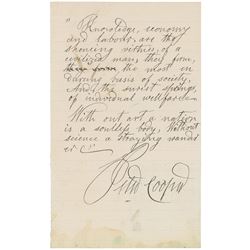 " Knowledge, economy
and labour, are the
shineing virthies, of a
civilized man, they form,
the most en
during basis of society.
And, the surest springs,
of individual wellfare
With out art a nation
is a soulless body, Without
science a straying wander
er "
Peter Cooper